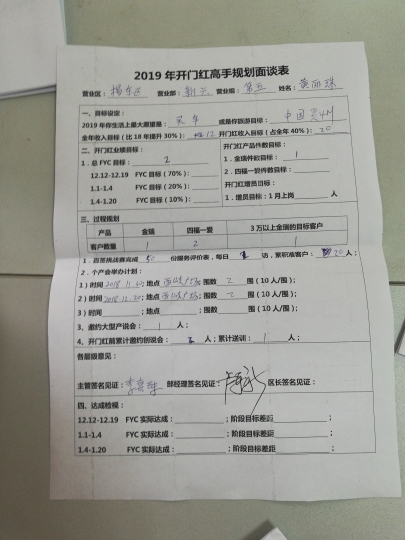 2019 年开门红高手规划面谈表
营业区： 营业部： 营业组：第五 姓名：黄丽珠
一、目标设定：
2019 年你生活上最大愿望是： 买车 或是你旅游目标： 中国
全年收入目标（比 18 年提升 30%）： 12 开门红收入目标（占全年 40%）：
二、开门红业绩目标： 开门红产品件数目标：
1．总 FYC 目标： 2 1．金瑞件数目标： 1
12.12-12.19 FYC 目标（70%）： 2．四福一爱件数目标：
1.1-1.4 FYC 目标（20%）： 开门红增员目标：
1.4-1.20 FYC 目标（10%）： 1．增员目标：1 月上岗 人
三、过程规划
产品 金瑞 四福一爱 3 万以上金瑞的目标客户
客户数量 1 2 1
1．百签挑战赛完成 50 份服务评价表，每日 访，累积准客户： 20 人；
2．个产会举办计划：
1）时间 2018.11.20；地点 围数 2 围（10 人/围）；
2）时间 2018.12.20；地点 围数 2 围（10 人/围）；
3）时间 ；地点 围数 围（10 人/围）；
3、邀约大型产说会： 1 人；
4、开门红前累计邀约创说会： 人；累计送训： 1 人；
各层级意见：
主管签名见证： 部经理签名见证： 区长签名见证：
四、达成检视：
12.12-12.19 FYC 实际达成： ；阶段目标差距 ；
1.1-1.4 FYC 实际达成： ；阶段目标差距 ；
1.4-1.20 FYC 实际达成： ；阶段目标差距 ；